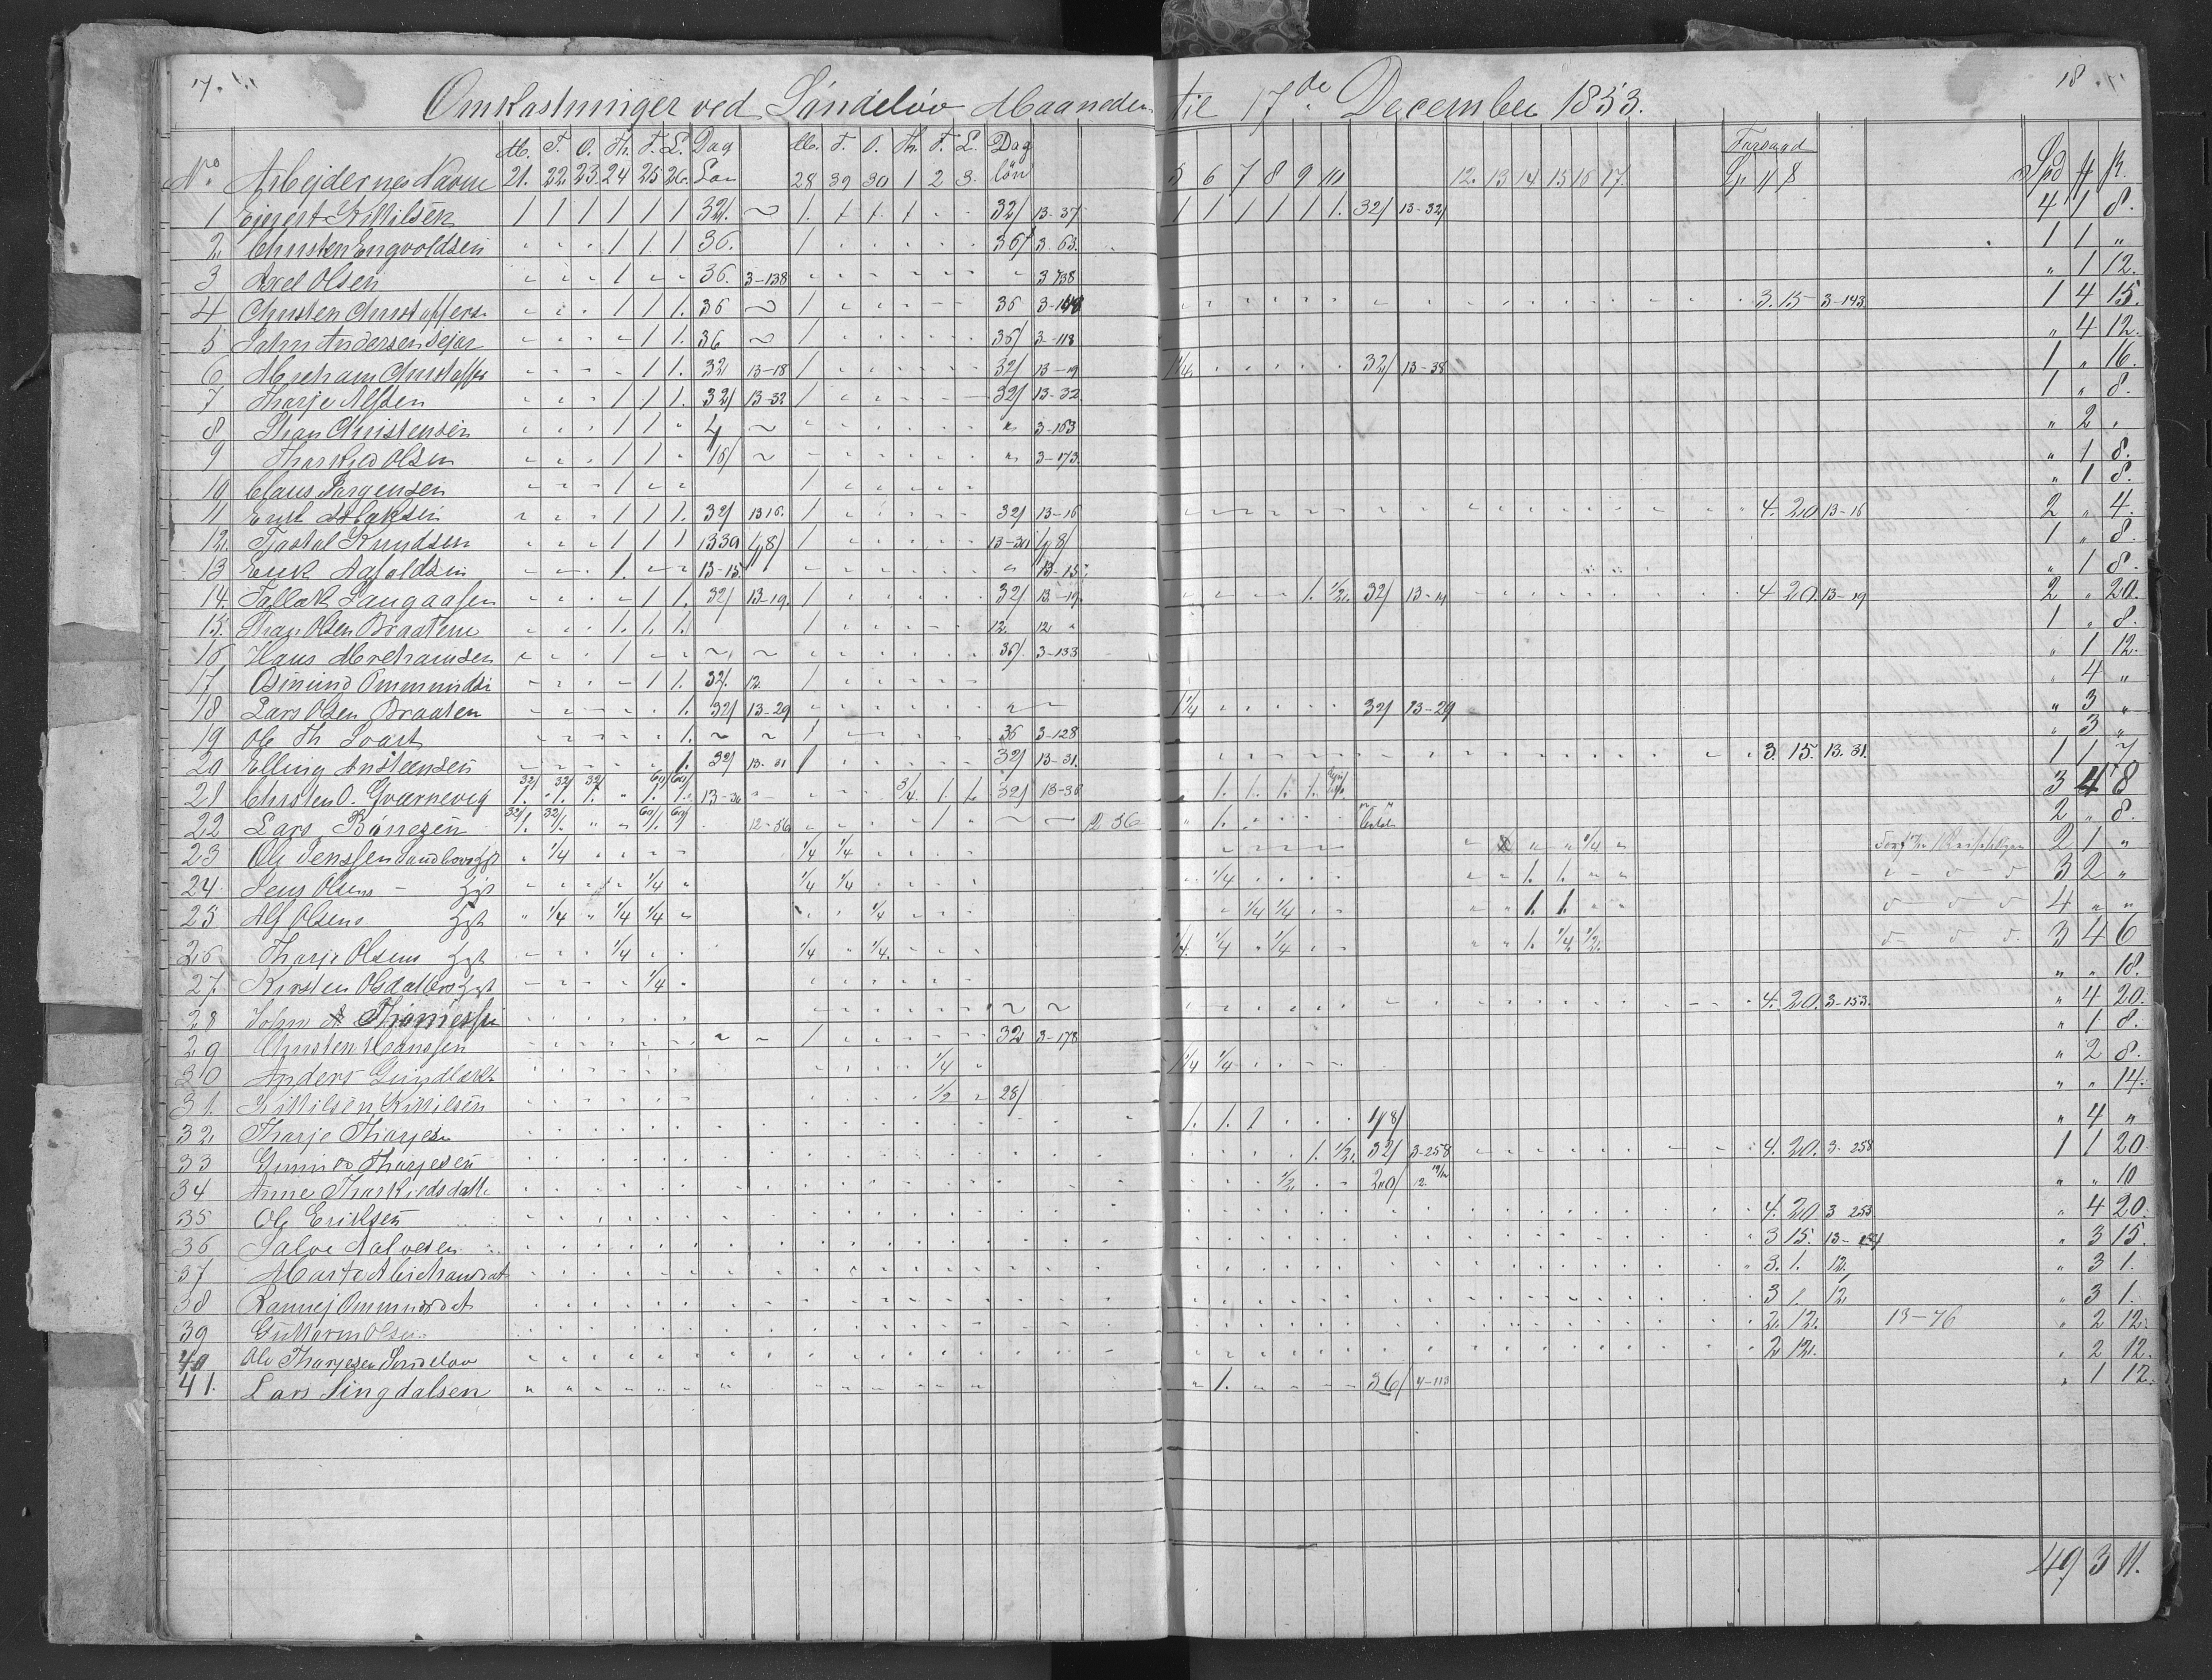 17. 18
Omkastninger ved Søndeløv Maaneden til 17de December 1853.
M. T. O. Th. F. L. Dag M. T. O. Th. F. L. Dag Forraad
No. Arbejdernes Navne 21. 22. 23. 24 25 26. Løn 28 29 30 1 2 3. løn 5 6 7 8 9 10 12. 13 14 15 16 17. Spd
1 Ejgert Kittilsen 1 1 1 1 1 1 32/. ~ 1. 1. 1. 1 32/ 13-37 1 1 1 1 1 1. 32/ 13-32/ 4 1 8.
2 Christen Engvoldsen 1 1 1 36. 1 36/ 3-63. 1 1 "
3 Axel Olsen 1 36. 3-138 " 3 138 " 1 12.
4 Christen Christoffers. 1 1 1. 36 ~ 1 36 3-148 3. 15 3-143 1 4 15.
5 Jahn Andersen 1 1. 36 ~ 1 36/ 3-118 " 4 12.
6 Abreham Christoffes 1 1. 32 13-18 1 32/ 13-19 1 1/4. 32/ 13-38 1 " 16.
7 Tharje Alfsen 1 1 1. 32/ 13-32 1 32/ 13-32. 1 " 8.
8 Thor Christensen 1 1 4 ~ " 3-163 " 2 "
9 Thorkjed Olsen 1 1 16/ ~ " 3-173. " 1 8.
10 Claus Jørgensen 1 1 " 1 8.
11 1 1 1. 32/ 13 16. 1 32/ 13-16 4. 20 13-16 2 " 4.
12. Tjøstol Knudsen 1 1 1 13 30 48/ 1 13-30 48/ 1 " 8.
13 Erik 1. 13-15. " 13-15. " 1 8.
14. Tallak Langaasen 1 1. 32/ 13-19. 1 32/ 13-19. 1. 1/2. 32/ 13-19 4 20. 13-19 2 " 20.
15. Thor Olsen Braatene 1. 1. 1. 1 12. 12 " 1 " 8.
16 Hans Abrehamsen 1 ~ ~ 36/. 3-133 " 1 12.
17 Osmund Ommundse 1 1. 32/. 12. 1 " 4 "
18 Lars Olsen Braaten 1. 32/ 13-29 1 1/4 32/ 13-29 " 3 "
19 Ole Th Svart 1. ~ ~ 1 36 3-128 " 3 "
20 Elling Ansteensen 1. 32/ 13-31 1 32/ 13-31. 3. 15. 13. 31. 1 1 7
21 Christen O. Gværnevig 32/ 1. 32/ 1. 32/ 1. " 60/ 1. 60/ 1. 13-36 3/4. 1. 1. 32/ 13-36 " 1. 1. 1. 1. 3 4 8
22 Lars 32/ 1. 32/ 1. " " 60/ 1. 60/ 12-56 1 ~ 12 56 " 1. 2 " 8.
23 Ole Jenssen 1/4 1/4 1/4 " " 1/4. 2 1 "
24. Jens Olsens 1/4 " 1/4 1/4 1/4 1. 1. 3 2 "
25 Alf Olsens " 1/4 " 1/4 1/4 1/4 1/4 1/4 1. 1. 4 " "
26 Tharje Olsens 1/4 1/4 1/4. 1/4. 1/4 1/4 1. 1/4 1/2. 3 4 6
27. Kirsten Olsdatters 1/4 " " 18.
28 John Thomessen ~ ~ 4. 20. 3-153. " 4 20.
29 Christen Hanssen 1 32 3-178 " 1 8.
30 Anders 1/4 1 1/4 1/4 " 2 8.
31. Kittilsen Kittilsen 1/2 28/ " " 14.
32. Tharje Tharjes. 1. 1. 1 48/ " 4 "
33 Gunnvo Tharjesen 1. 1/2. 32/ 3-258 4. 20. 3. 258 1 1 20
34 Anne Thorkjedsdatt. 1/2. 20/ 12. " " 10
35 Ole Eriksen 4. 20. 3 253 " 4 20.
36 Salve Salvesen 3 15. 13- " 3 15.
37 Marte Abrehamsdat 3. 1. 12. " 3 1.
38 Rannej Ommundsdat 3 1. 12 " 3 1.
39 Guttorm Olsen 2. 12. 13-76 " 2 12.
40 Ole Tharjesen Søndeløv 2 12. " 2 12.
41. Lars Lingdalsen " 1. 36/ 4-113 " 1 12.
49 3 11.